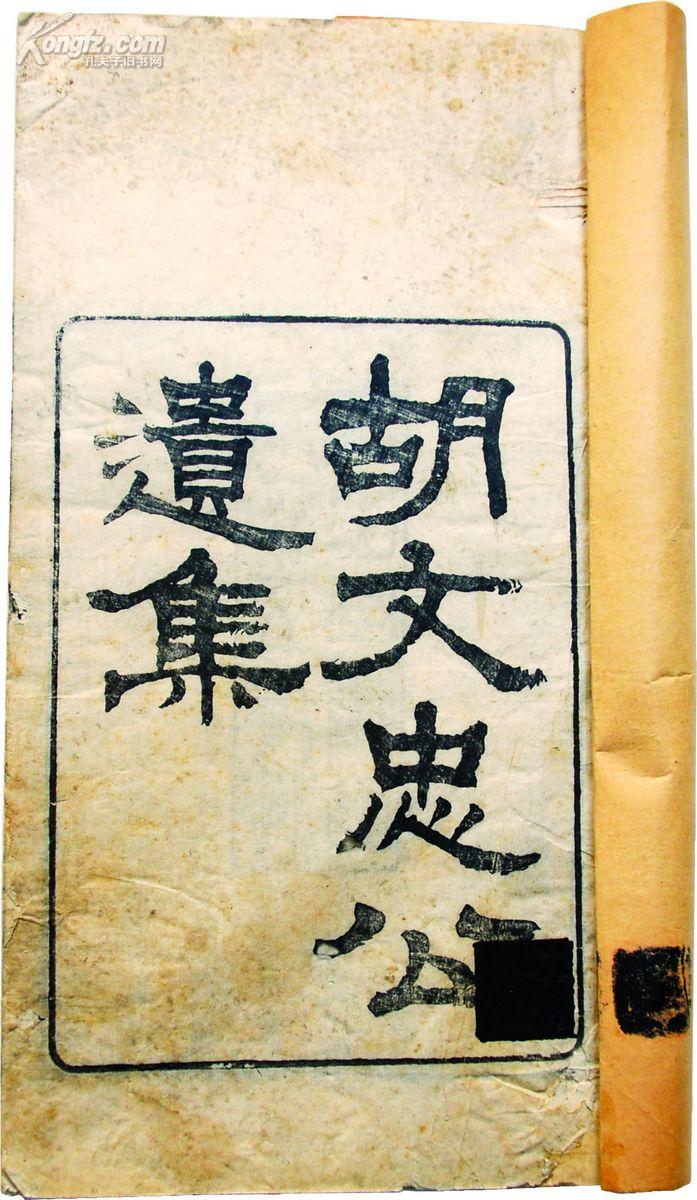 胡文忠公
遺集
Kongfz.com
孔夫子旧书网